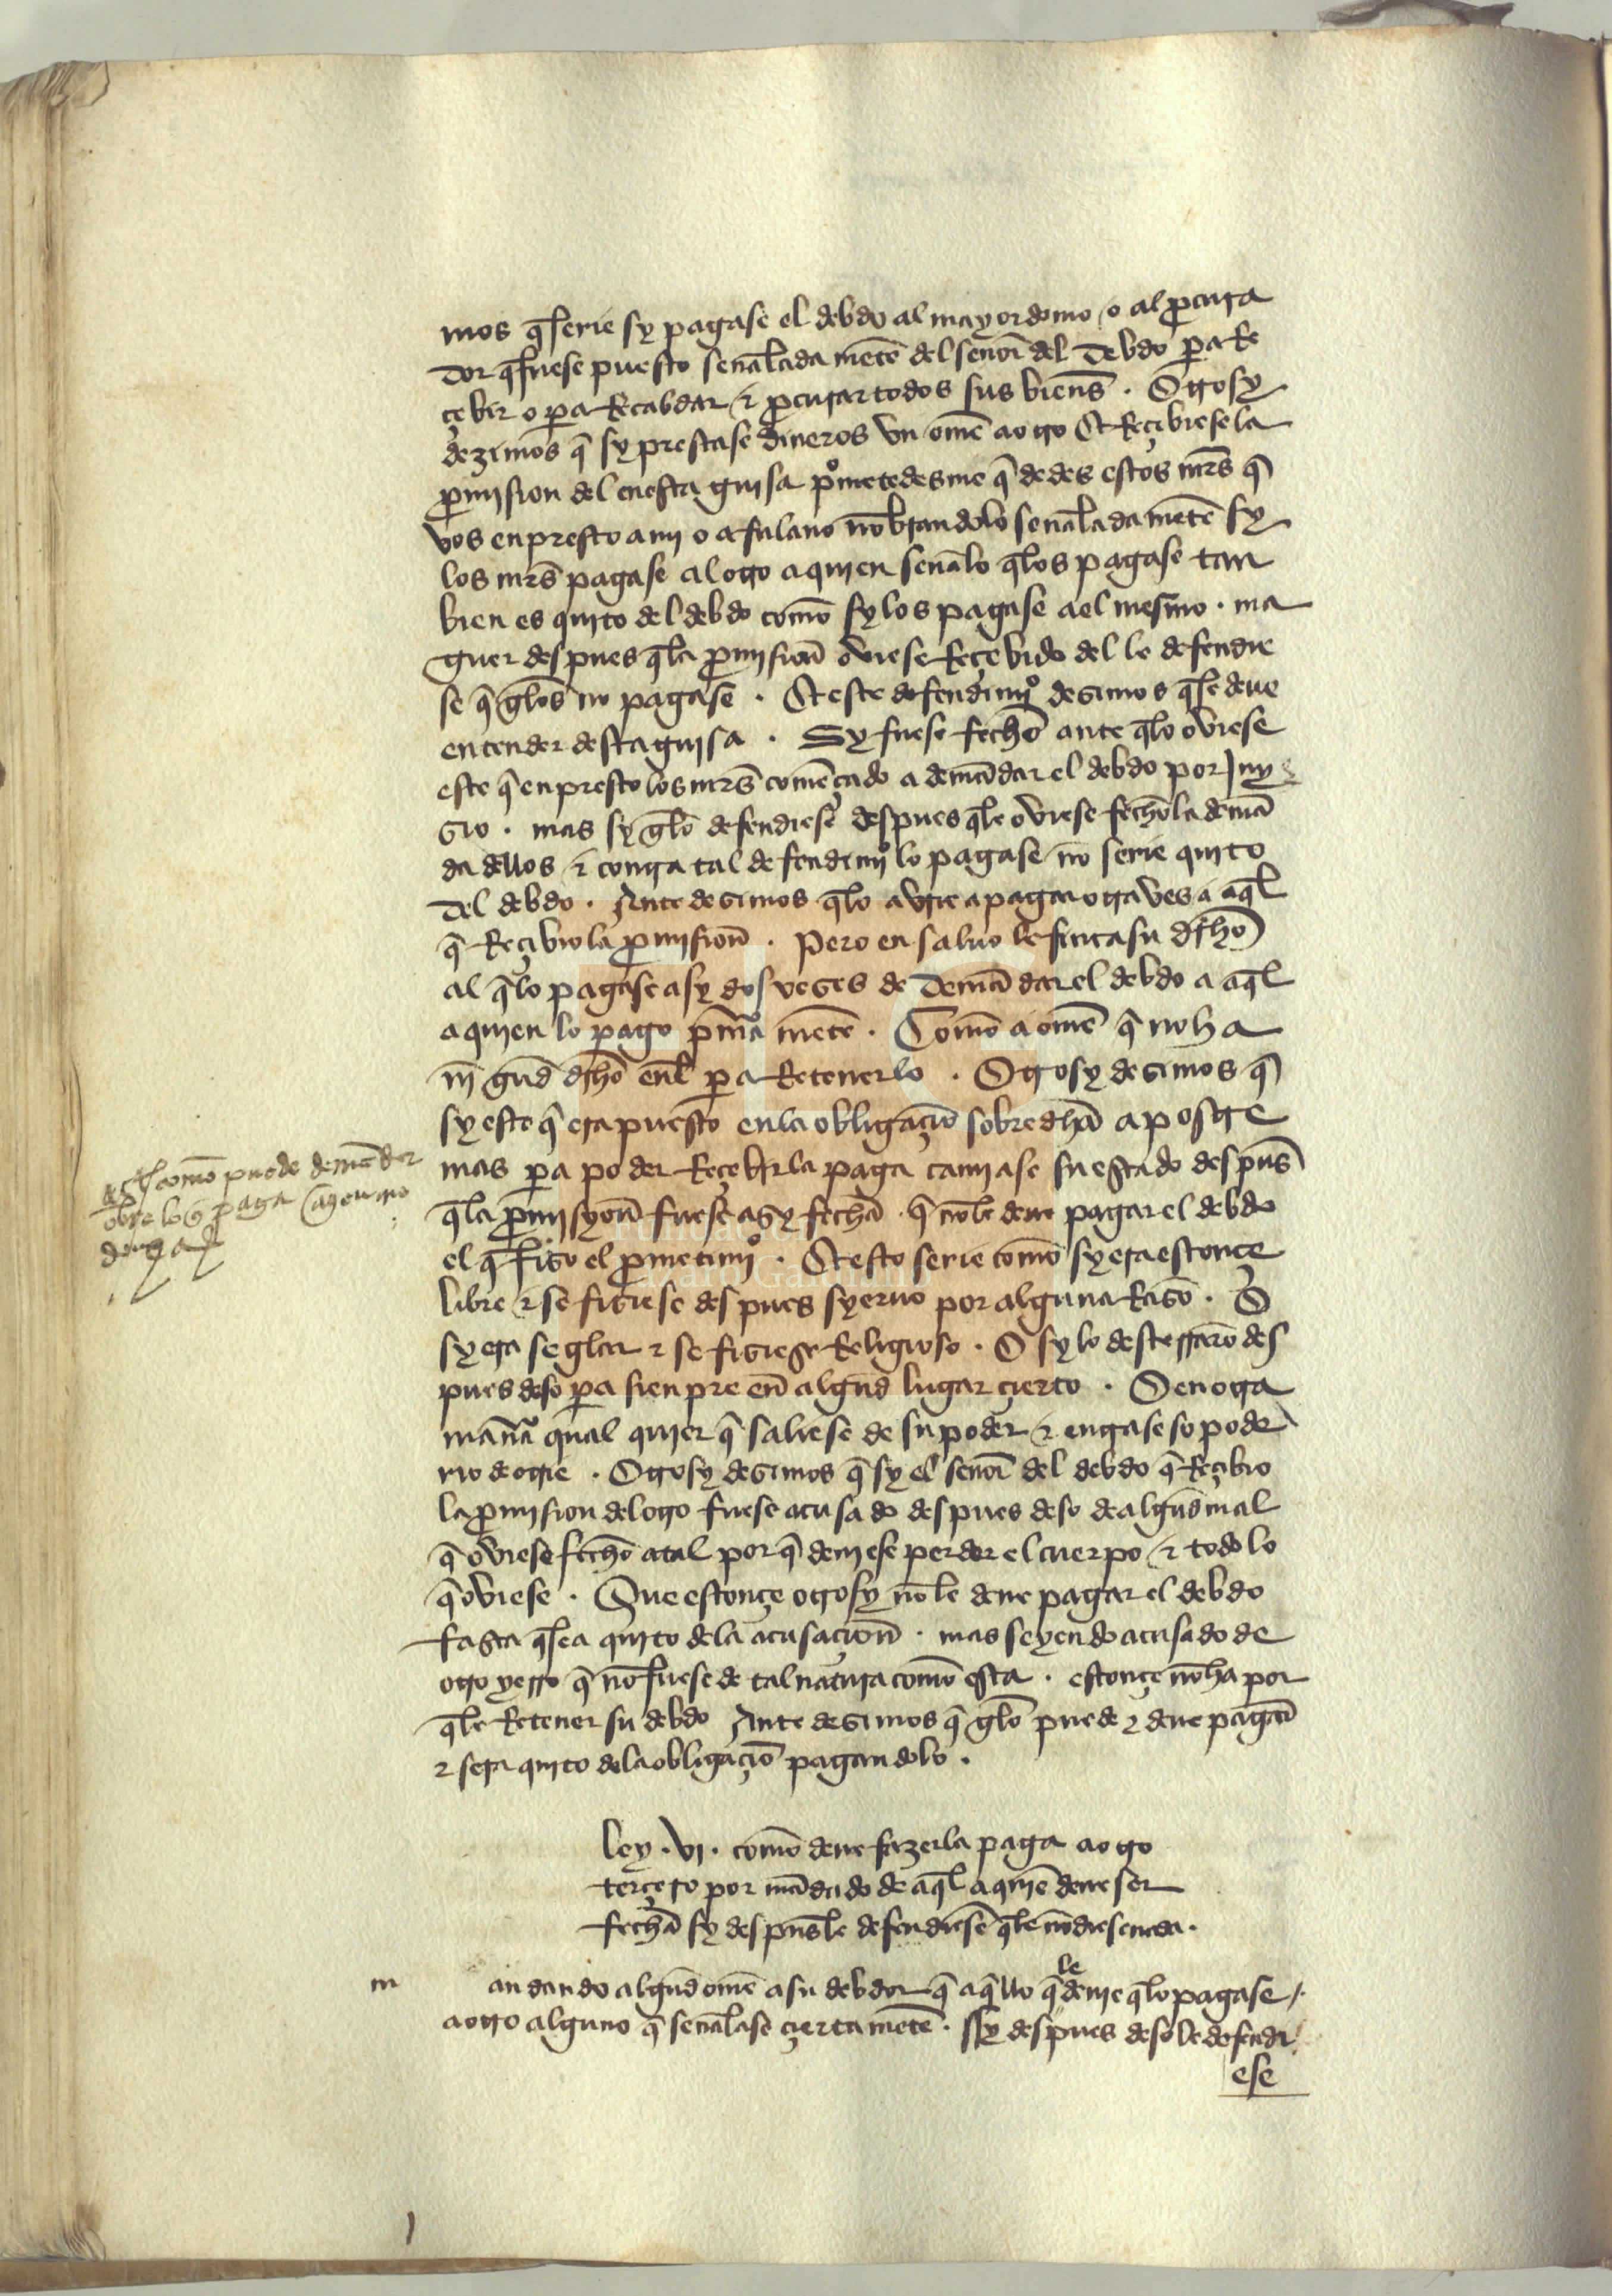 mos q̃ serie sy pagase el debdo al mayordomo o al pcura
dor q̃ fuese puesto señalada mẽte del señor del debdo pa Re
çebir o pa Recabdar & pcurar todos sus bienes . Otrosy
dezimos q̃ sy prestase dineros vn ome a otro Et Reçibiese la
pmision del en esta guisa pometedes me q̃ dedes estos mrs q̃
vos enpresto a mi o a fulano nõbrandolo señalada mẽte sy
los mrs pagase al otro a quien señalo q̃ los pagase tan
bien es quito del debdo como sy los pagase a el mesmo . ma
guer despues q̃ la pmision oviese Reçebido del le defendie
se q̃ gelos no pagase . Et este defendimio desimos q̃ se deue
entender desta guisa . Sy fuese fecho ante q̃ lo oviese
este q̃ enpresto los mrs comẽçado a demãdar el debdo por juy
sio . mas sy gelo defendiese despues q̃ le oviese fecho la demã
da dellos & contra tal defendimio lo pagase no serie quito
del debdo . Ante desimos q̃ lo avrie a pagar otra ves a aq̃l
q̃ Reçibio la pmision . Pero en saluo le finca su dicho
al q̃ lo pagase asy dos veses de demãdar el debdo a aq̃l
a quien lo pago pmera mẽte . Como a ome q̃ no ha
nigund dicho enl pa Retenerlo . Otrosy desimos q̃
sy este q̃ era puesto en la obligaçio sobre dha a postre
mas pa poder Reçebir la paga camiase su estado despues
q̃ la pmisyon fuese asy fecha . q̃ nole deue pagar el debdo
el q̃ fiso el pmetimio . Et esto serie como sy era estonçe
libre & se fisiese despues syeruo por alguna Raso . O
sy era seglar & se fisiese Religioso . O sy lo desterraro des
pues deso pa sienpre en algund lugar çierto . O en otra
manera qual quier q̃ saliese de su poder & entrase so pode
rio de otrie . Otrosy desimos q̃ sy el señor del debdo q̃ Reçibio
la pmision del otro fuese acusado despues deso de algund mal
q̃ oviese fecho atal por q̃ deuiese perder el cuerpo & todo lo
q̃ oviese . Que estonçe otrosy nole deue pagar el debdo
fasta q̃ sea quito dela acusaçion . mas seyendo acusado de
otro yerro q̃ no fuese de tal natura como esta . estonçe no ha por
q̃ le Retener su debdo Ante desimos q̃ gelo puede & deue pagar
& sera quito dela obligaçio pagandolo .
ley . vi . como deue fazer la paga a otro
terçero por mãdado de aq̃l a quie deue ser
fecha sy despues le defendiese q̃ le
m andando algund ome a su debdor q̃ aq̃llo q̃ le deuie q̃ lo pagase
a otro alguno q̃ señalase çierta mẽte . sy despues deso le defendi
ese
como puede demãdar
paga